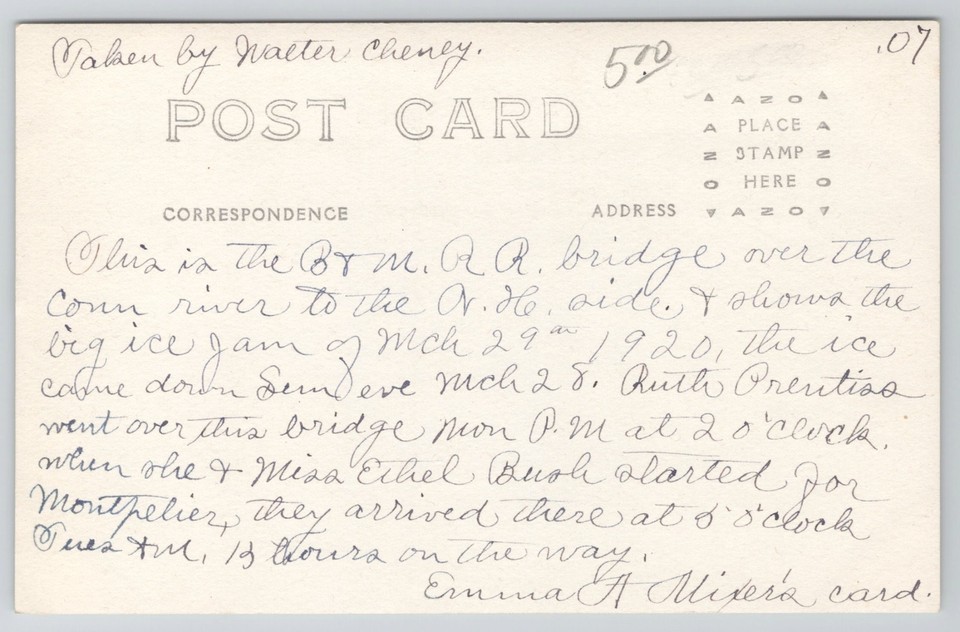 Taken by Walter Cheney.
5.00
.07
POST CARD
AZO
PLACE
STAMP
HERE
AZO
CORRESPONDENCE
ADDRESS
This is the B & M. R R. bridge over the
Conn river to the N. H. side. & shows the
big ice Jam of Mch 29th 1920, the ice
came down Sun eve Mch 28. Ruth Prentiss
went over this bridge Mon P.M at 2 o'clock.
when she & Miss Ethel Bush started for
Montpelier, they arrived there at 3 o'clock
Tues AM. 13 hours on the way.
Emma H Mixer's card.